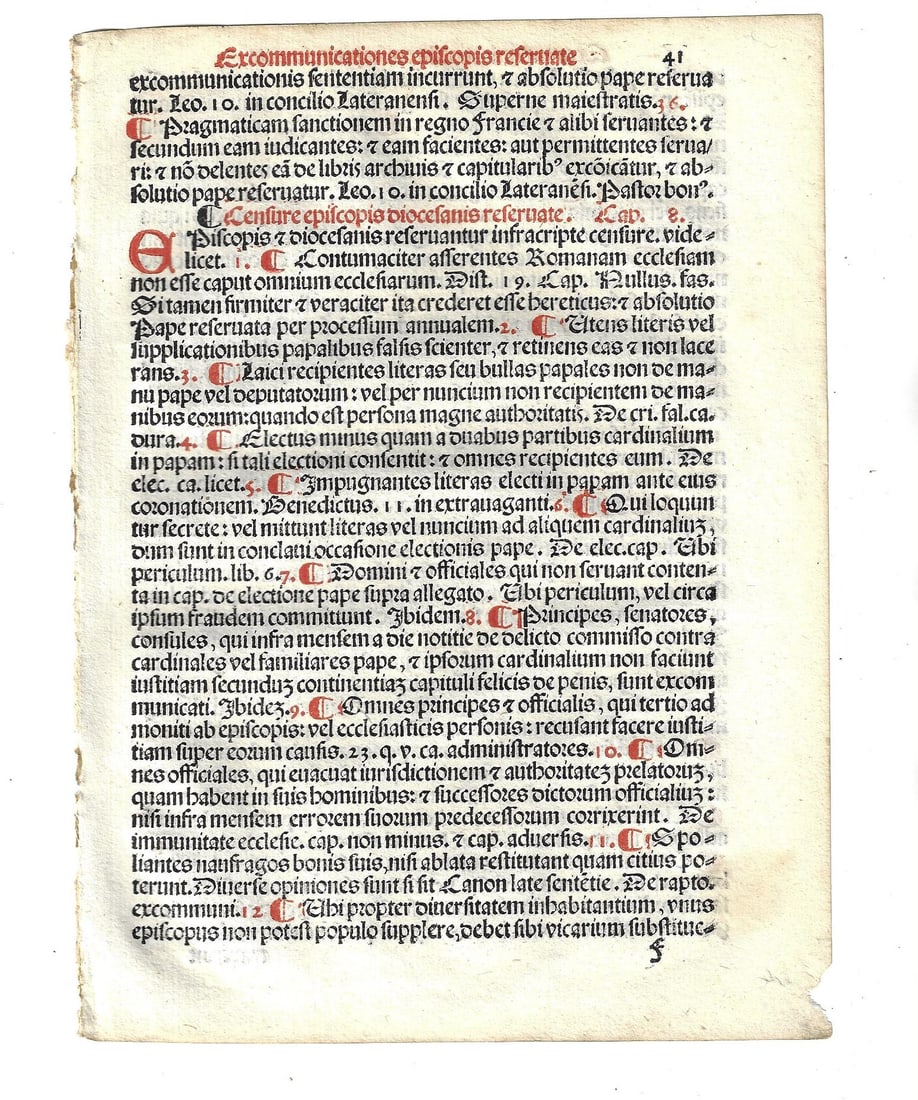 Excommunicationes episcopis reseruate 41
excommunicationis sententiam incurrunt, ⁊ absolutio pape reserua
tur. Leo. 10. in concilio Lateranensi. Superne maiestratis. 36.
¶ Pragmaticam sanctionem in regno Francie ⁊ alibi seruantes: ⁊
secundum eam iudicantes: ⁊ eam facientes: aut permittentes serua/
ri: ⁊ nõ delentes eã de libris archiuis ⁊ capitularibꝰ excõicãtur, ⁊ ab⸗
solutio pape reseruatur. Leo. 10. in concilio Lateranẽsi. Pastor bonꝰ.
¶ Censure episcopis diocesanis reseruate. Cap. 8.
EPiscopis ⁊ diocesanis reseruantur infracripte censure. vide⸗
licet. 1. ¶ Contumaciter asserentes Romanam ecclesiam
non esse caput omnium ecclesiarum. Dist. 19. Cap. Nullus. fas.
Si tamen firmiter ⁊ veraciter ita crederet esse hereticus: ⁊ absolutio
Pape reseruata per processum annualem. 2. ¶ Utens literis vel
supplicationibus papalibus falsis scienter, ⁊ retinens eas ⁊ non lace
rans. 3. ¶ Laici recipientes literas seu bullas papales non de ma⸗
nu pape vel deputatorum: vel per nuncium non recipientem de ma⸗
nibus eorum: quando est persona magne authoritatis. De cri. fal. ca.
dura. 4. ¶ Electus minus quam a duabus partibus cardinalium
in papam: si tali electioni consentit: ⁊ omnes recipientes eum. De
elec. ca. licet. 5. ¶ Impugnantes literas electi in papam ante eius
coronationem. Benedictus. 11. in extrauaganti. 6. ¶ Qui loquun
tur secrete: vel mittunt literas vel nuncium ad aliquem cardinaliuʒ,
dum sunt in conclaui occasione electionis pape. De elec. cap. Ubi
periculum. lib. 6. 7. ¶ Domini ⁊ officiales qui non seruant conten⸗
ta in cap. de electione pape supra allegato. Ubi periculum, vel circa
ipsum fraudem committunt. Ibidem. 8. ¶ Principes, senatores,
consules, qui infra mensem a die notitie de delicto commisso contra
cardinales vel familiares pape, ⁊ ipsorum cardinalium non faciunt
iustitiam secunduʒ continentiaʒ capituli felicis de penis, sunt excom
municati. Ibideʒ. 9. ¶ Omnes principes ⁊ officialis, qui tertio ad
moniti ab episcopis: vel ecclesiasticis personis: recusant facere iusti⸗
tiam super eorum causis. 23. q. v. ca. administratores. 10. ¶ Om⸗
nes officiales, qui euacuat iurisdictionem ⁊ authoritateʒ prelatoruʒ,
quam habent in suis hominibus: ⁊ successores dictorum officialiuʒ:
nisi infra mensem errorem suorum predecessorum corrixerint. De
immunitate ecclesie. cap. non minus. ⁊ cap. aduersis. 11. ¶ Spo⸗
liantes naufragos bonis suis, nisi ablata restitutant quam citius po⸗
terunt. Diuerse opiniones sunt si sit Canon late sentẽtie. De rapto.
excommuni. 12 ¶ Ubi propter diuersitatem inhabitantium, vnus
episcopus non potest populo supplere, debet sibi vicarium substitue⸗
f